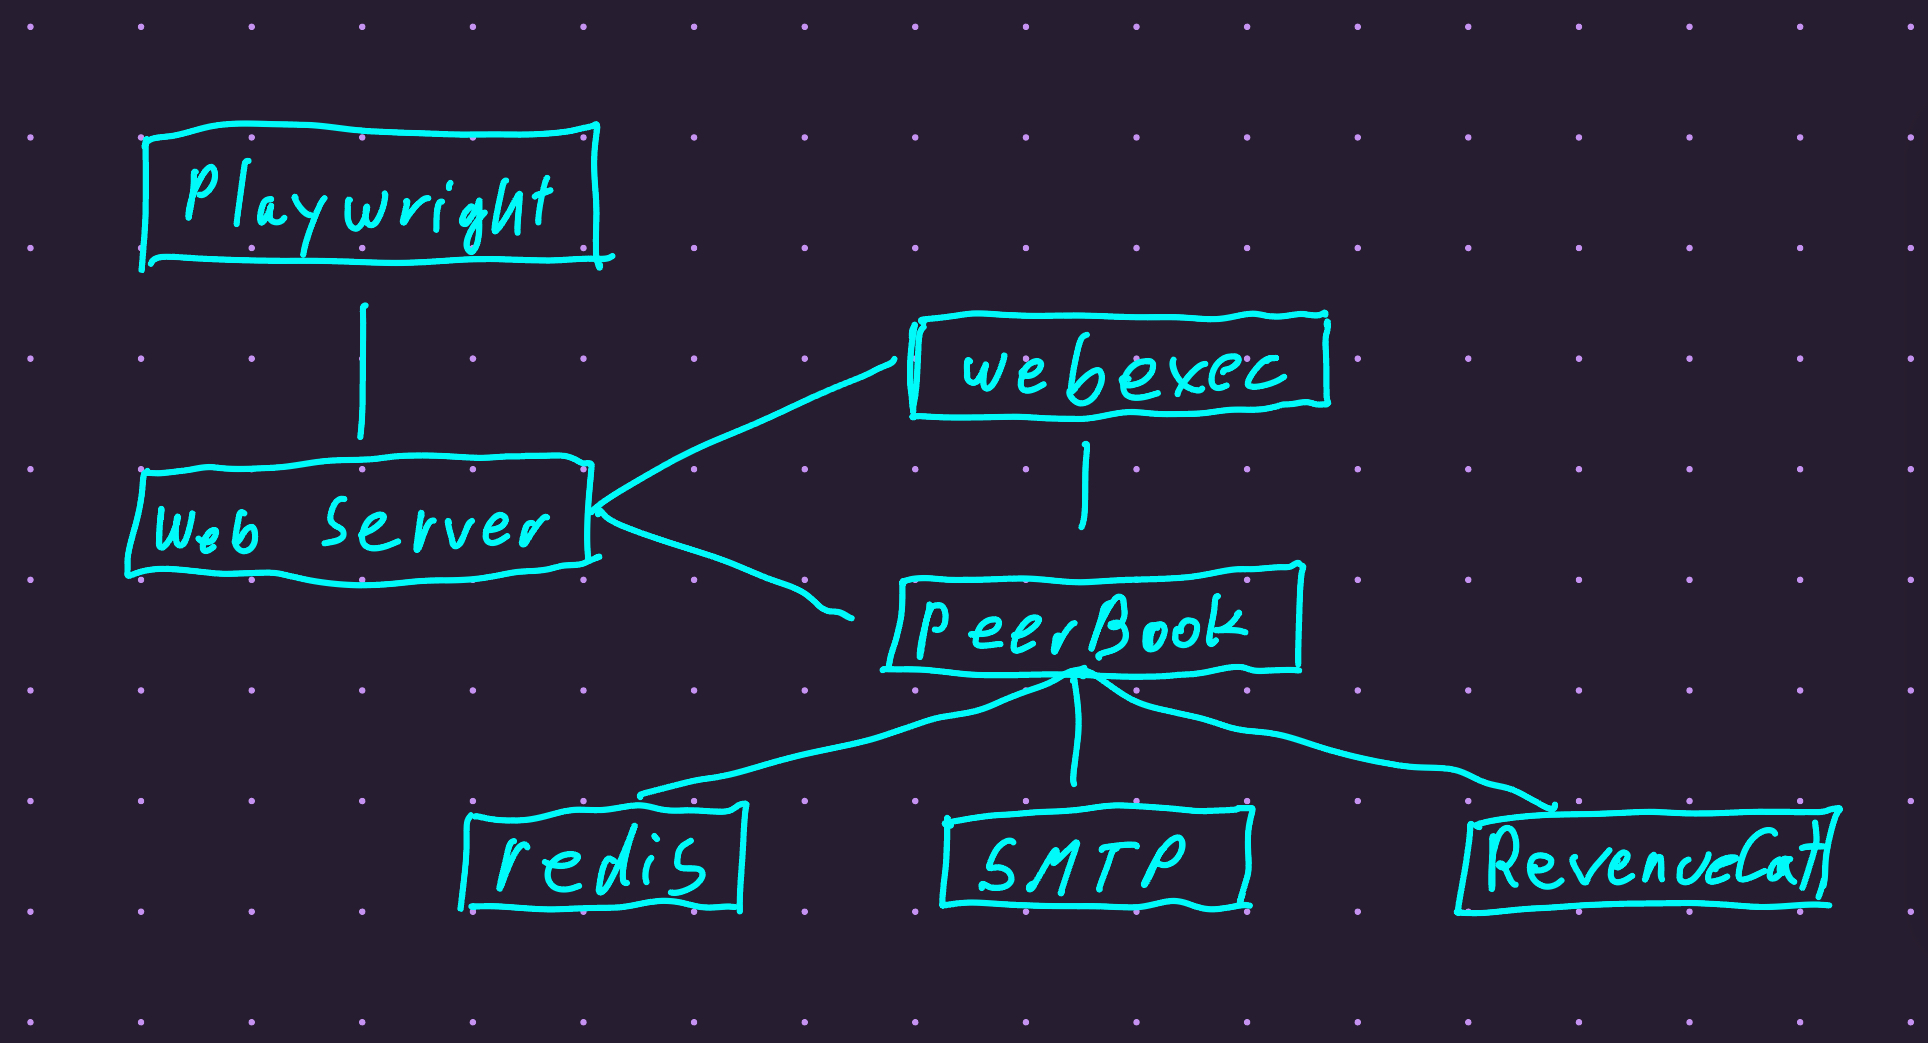 Playwright
webexec
Web Server
PeerBook
redis
SMTP
RevenueCat